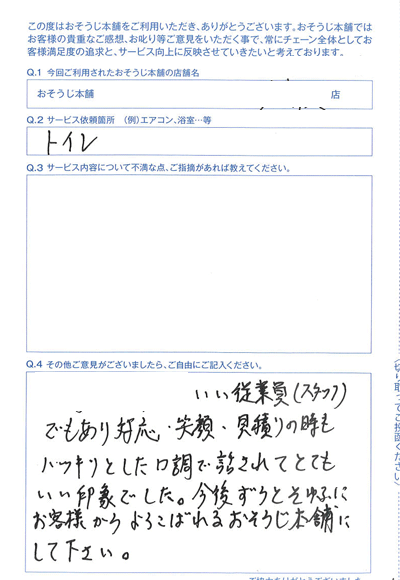 この度はおそうじ本舗をご利用いただき、ありがとうございます。おそうじ本舗では
お客様の貴重なご感想、お叱り等ご意見をいただく事で、常にチェーン全体としてお
客様満足度の追求と、サービス向上に反映させていきたいと考えております。
Q.1 今回ご利用されたおそうじ本舗の店舗名
おそうじ本舗 店
Q.2 サービス依頼箇所 (例)エアコン、浴室…等
トイレ
Q.3 サービス内容について不満な点、ご指摘があれば教えてください。
Q.4 その他ご意見がございましたら、ご自由にご記入ください。
いい従業員(スタッフ)
でもあり好応、笑顔、見積りの時も
ハッキリとした口調で話されてとても
いい印象でした。今後ずうっと
お客様からよろこばれるおそうじ本舗に
して下さい。
(切り取ってご投函ください)